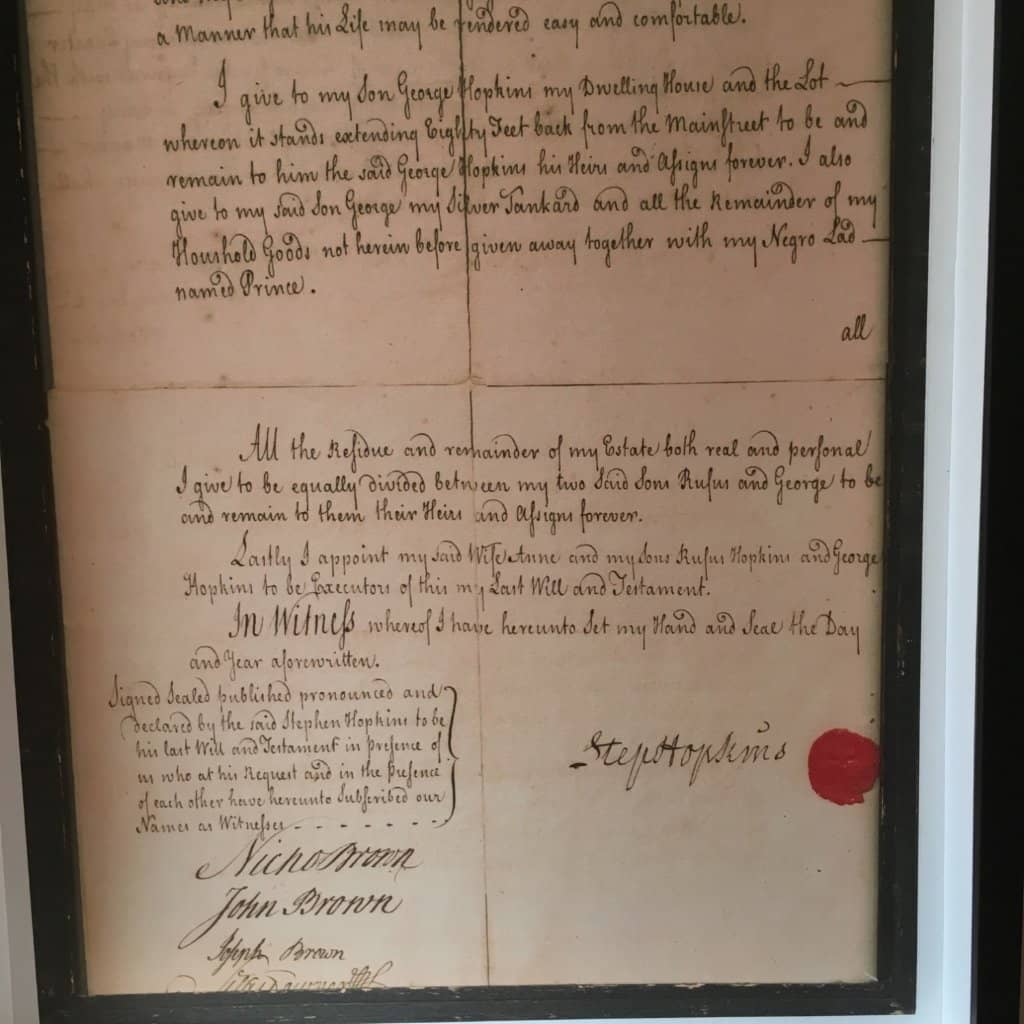 a Manner that his Life may be rendered easy and comfortable.
I give to my Son George Hopkins my Dwelling House and the Lot
whereon it stands extending Eighty Feet back from the Mainstreet to be and
remain to him the said George Hopkins his Heirs and Assigns forever. I also
give to my said Son George my Silver Tankard and all the Remainder of my
Houshold Goods not herein before given away together with my Negro Lad
named Prince.
all
All the Residue and remainder of my Estate both real and personal
I give to be equally divided between my two Said Sons Rufus and George to be
and remain to them their Heirs and Assigns forever.
Lastly I appoint my said Wife Anne and my sons Rufus Hopkins and George
Hopkins to be Executors of this my Last Will and Testament.
In Witness whereof I have hereunto Set my Hand and Seal the Day
and Year aforewritten.
Signed Sealed published pronounced and
declared by the said Stephen Hopkins to be
his last Will and Testament in presence of
us who at his Request and in the presence
of each other have hereunto Subscribed our
Names as Witnesses - - - - - - -
Step Hopkins
Nicho Brown
John Brown
Joseph Brown